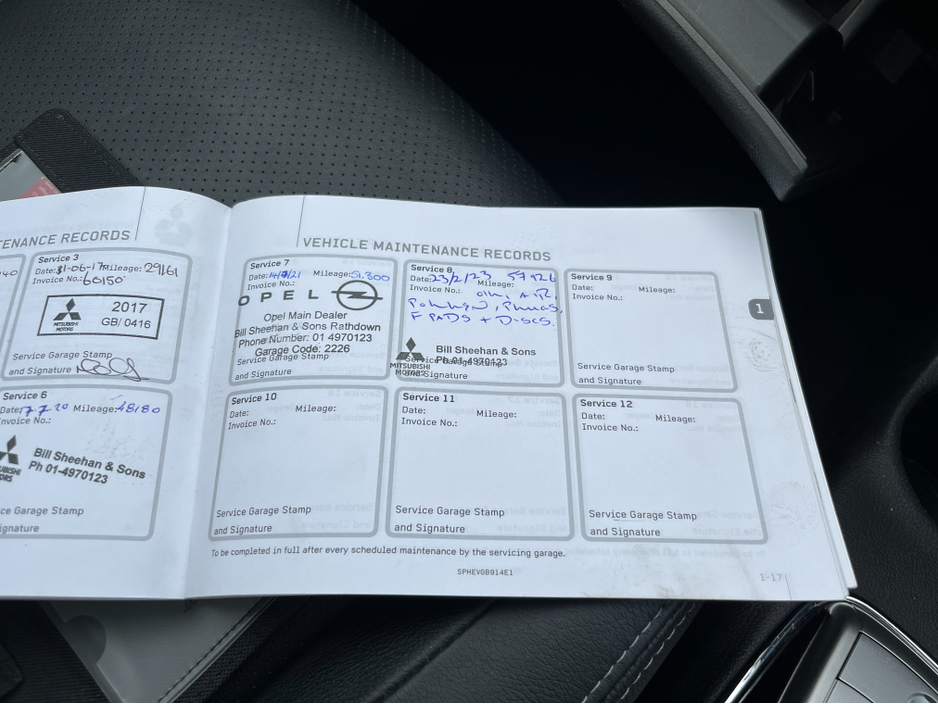 TENANCE RECORDS
Service 3
Date: 31-06-17 Mileage: 29161
Invoice No.: 60150
MITSUBISHI
MOTORS
2017
GB/ 0416
Service Garage Stamp
and Signature
Service 6
Date: 7 7 20 Mileage: 48180
Invoice No.:
Bill Sheehan & Sons
Ph 01-4970123
ce Garage Stamp
ignature
VEHICLE MAINTENANCE RECORDS
Service 7
Date: /21 Mileage: 51.300
Invoice No.:
OPEL
Opel Main Dealer
Bill Sheehan & Sons Rathdown
Phone Number: 01 4970123
Garage Code: 2226
Service Garage Stamp
and Signature
Service 8
Date: 23/2/23 57926
Mileage:
Invoice No.: OIL, AIR,
Pollen, Plugs,
F PADS + Discs.
Bill Sheehan & Sons
Ph 01-4970123
MITSUBISHI
MOTORS
Service Garage Stamp
and Signature
Service 9
Date: Mileage:
Invoice No.:
Service Garage Stamp
and Signature
Service 10
Date: Mileage:
Invoice No.:
Service Garage Stamp
and Signature
Service 11
Date: Mileage:
Invoice No.:
Service Garage Stamp
and Signature
Service 12
Date: Mileage:
Invoice No.:
Service Garage Stamp
and Signature
1
To be completed in full after every scheduled maintenance by the servicing garage.
SPHEVGB914E1
1-17